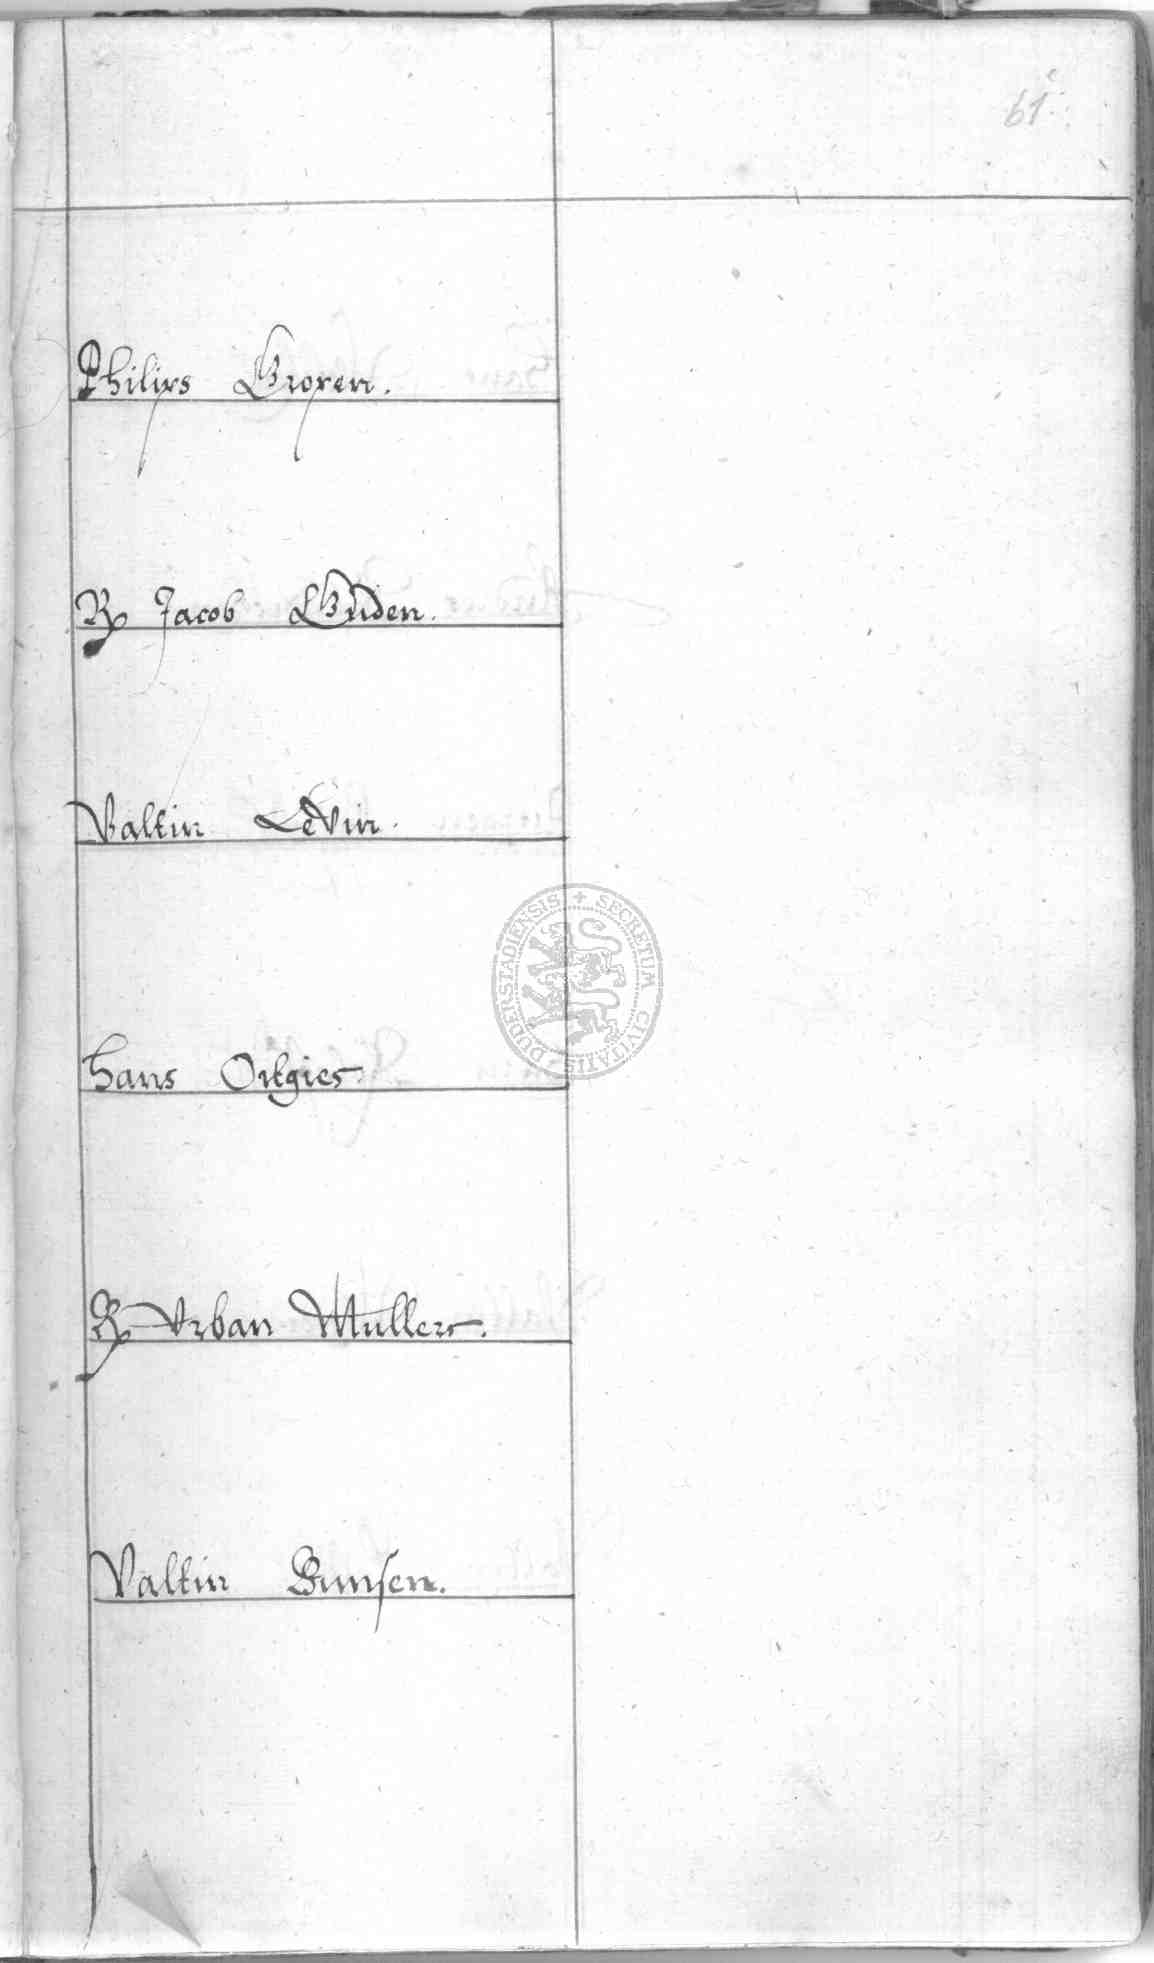 61
Philips Gropen.
R Jacob Güden.
Valtin Levin.
SECRETUM CIVITATIS DUDERSTADIENSIS
Hans Ortgies
R Urban Müllers.
Valtin Bunsen.